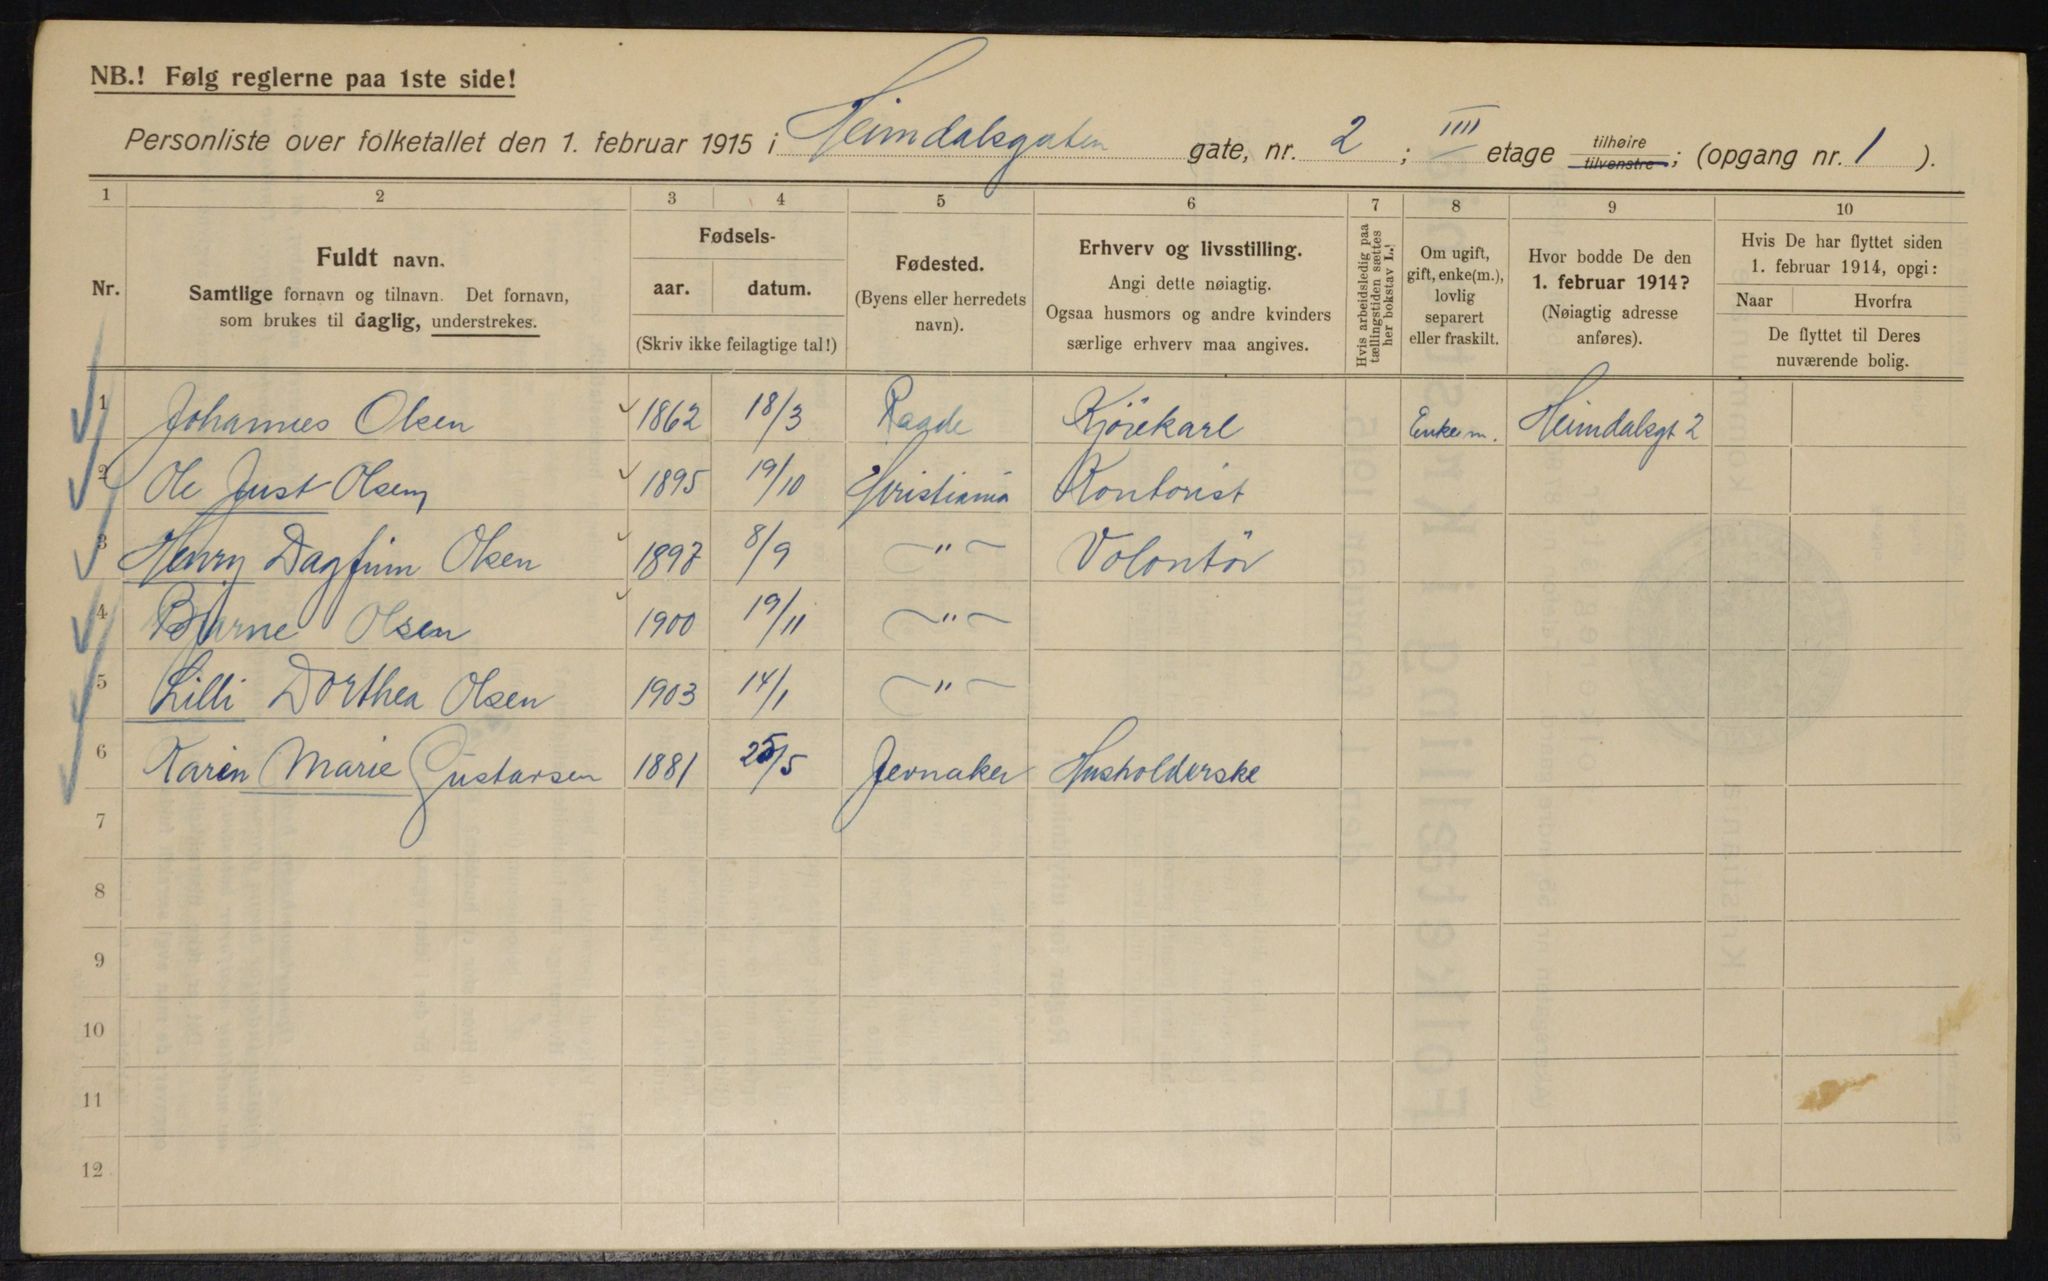 NB.! Følg reglerne paa 1ste side!
Personliste over folketallet den 1. februar 1915 i Heimdalsgaten gate, nr. 2 ; IIII etage tilhøire tilvenstre; (opgang nr. 1 ).
1 2 3 4 5 6 7 8 9 10
Nr.
Fuldt navn.
Samtlige fornavn og tilnavn. Det fornavn,
som brukes til daglig, understrekes.
Fødsels-
aar. datum.
(Skriv ikke feilagtige tal!)
Fødested.
(Byens eller herredets
navn).
Erhverv og livsstilling.
Angi dette nøiagtig.
Ogsaa husmors og andre kvinders
særlige erhverv maa angives.
Hvis arbeidsledig paa
tællingstiden sættes
her bokstav L.!
Om ugift,
gift, enke(m.),
lovlig
separert
eller fraskilt.
Hvor bodde De den
1. februar 1914?
(Nøiagtig adresse
anføres).
Hvis De har flyttet siden
1. februar 1914, opgi:
Naar Hvorfra
De flyttet til Deres
nuværende bolig.
1 Johannes Olsen 1862 18/3 Raade Kjörekarl Enkem. Heimdalsgt 2
2 Ole Just Olsen 1895 19/10 Kristiania Kontorist
3 Henry Dagfinn Olsen 1897 8/9 — " — Volontör
4 Bjarne Olsen 1900 19/11 — " —
5 Lilli Dorthea Olsen 1903 14/1 — " —
6 Karen Marie Gustavsen 1881 25/5 Jevnaker Husholderske
7
8
9
10
11
12